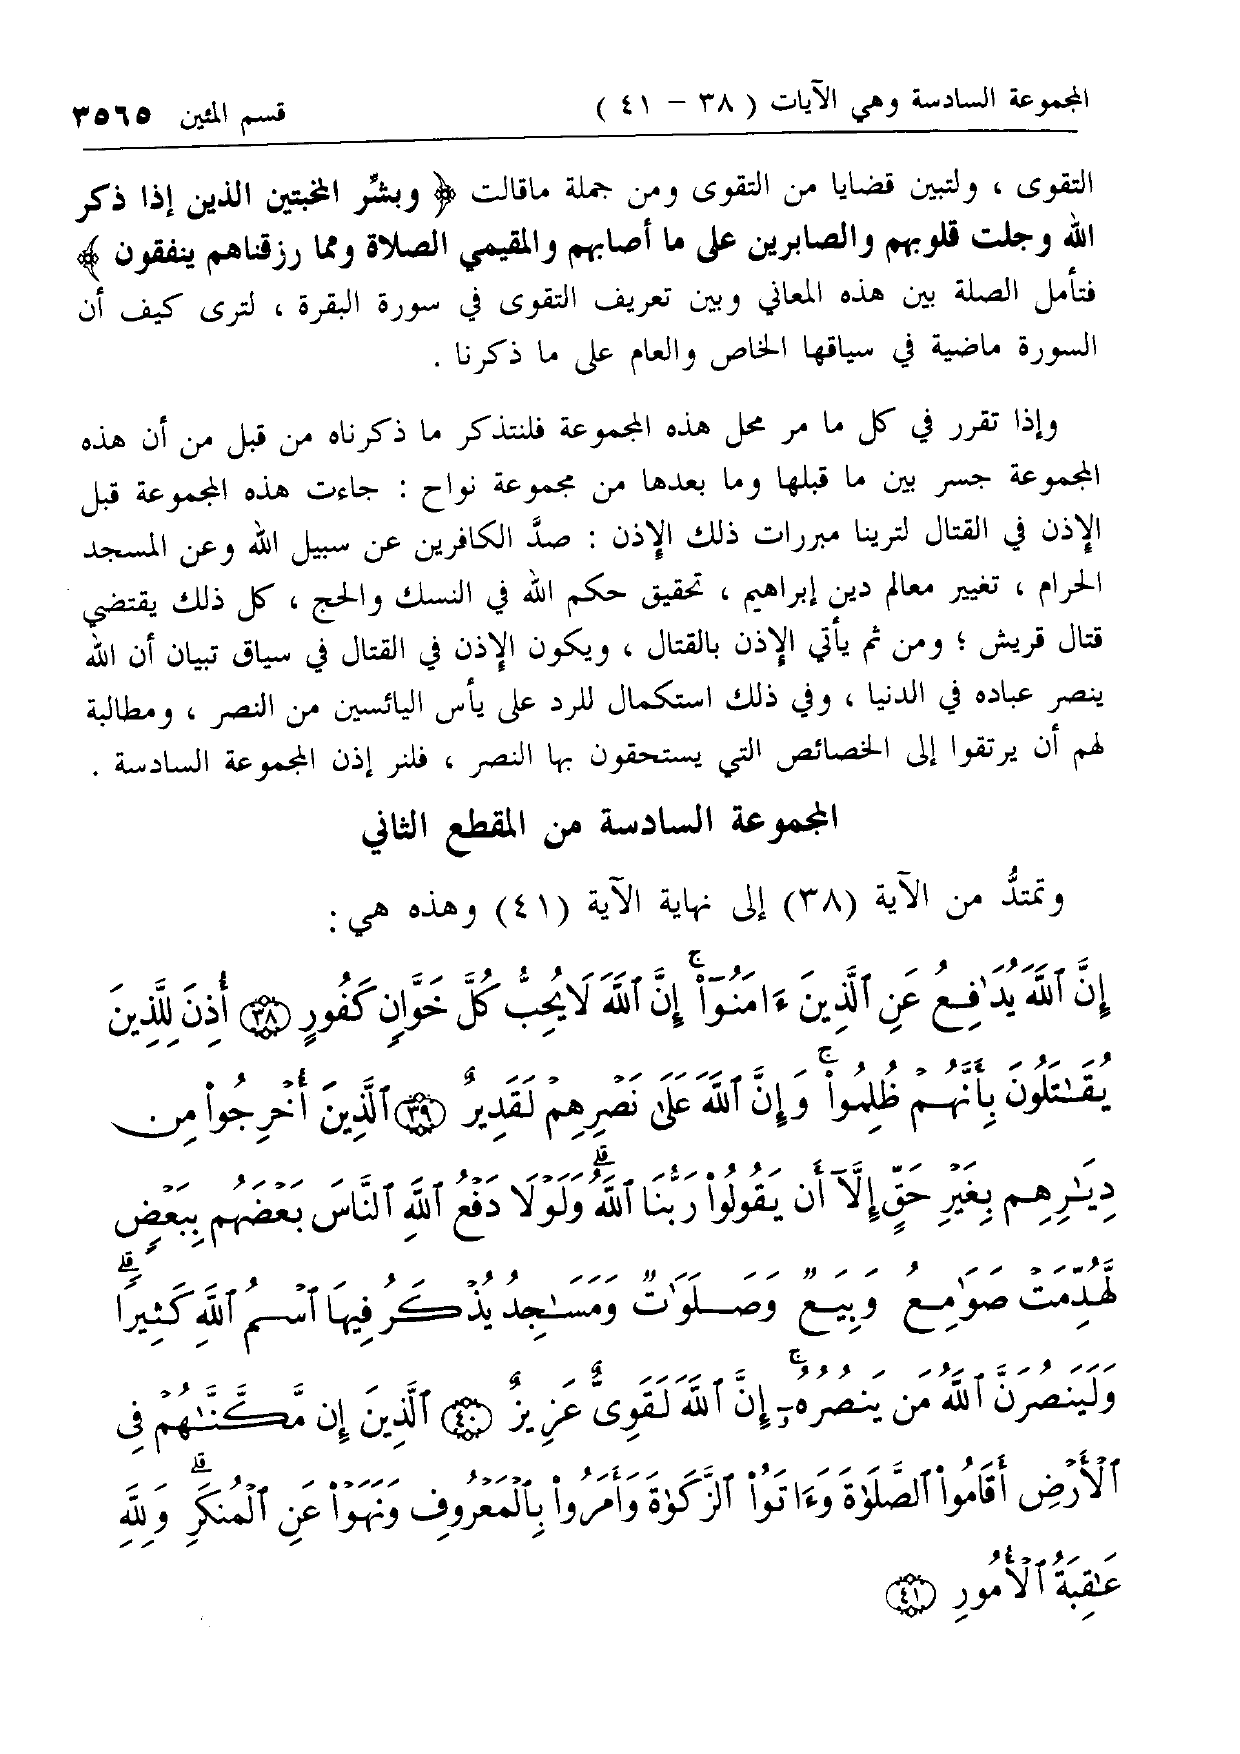 المجموعة السادسة وهي الآيات ( ٣٨ – ٤١ )
قسم المئين ٣٥٦٥
التقوى ، ولتبين قضايا من التقوى ومن جملة ماقالت ﴿ وبشِّر المخبتين الذين إذا ذكر
الله وجلت قلوبهم والصابرين على ما أصابهم والمقيمي الصلاة ومما رزقناهم ينفقون ﴾
فتأمل الصلة بين هذه المعاني وبين تعريف التقوى في سورة البقرة ، لترى كيف أن
السورة ماضية في سياقها الخاص والعام على ما ذكرنا .
وإذا تقرر في كل ما مر محل هذه المجموعة فلنتذكر ما ذكرناه من قبل من أن هذه
المجموعة جسر بين ما قبلها وما بعدها من مجموعة نواح : جاءت هذه المجموعة قبل
الإذن في القتال لترينا مبررات ذلك الإذن : صدَّ الكافرين عن سبيل الله وعن المسجد
الحرام ، تغيير معالم دين إبراهيم ، تحقيق حكم الله في النسك والحج ، كل ذلك يقتضي
قتال قريش ؛ ومن ثم يأتي الإذن بالقتال ، ويكون الإذن في القتال في سياق تبيان أن الله
ينصر عباده في الدنيا ، وفي ذلك استكمال للرد على يأس اليائسين من النصر ، ومطالبة
لهم أن يرتقوا إلى الخصائص التي يستحقون بها النصر ، فلنر إذن المجموعة السادسة .
المجموعة السادسة من المقطع الثاني
وتمتدُّ من الآية (٣٨) إلى نهاية الآية (٤١) وهذه هي :
إِنَّ ٱللَّهَ يُدَٰفِعُ عَنِ ٱلَّذِينَ ءَامَنُوٓا۟ ۚ إِنَّ ٱللَّهَ لَا يُحِبُّ كُلَّ خَوَّانٍ كَفُورٍ ٣٨ أُذِنَ لِلَّذِينَ
يُقَٰتَلُونَ بِأَنَّهُمْ ظُلِمُوا۟ ۚ وَإِنَّ ٱللَّهَ عَلَىٰ نَصْرِهِمْ لَقَدِيرٌ ٣٩ ٱلَّذِينَ أُخْرِجُوا۟ مِن
دِيَٰرِهِم بِغَيْرِ حَقٍّ إِلَّآ أَن يَقُولُوا۟ رَبُّنَا ٱللَّهُ ۗ وَلَوْلَا دَفْعُ ٱللَّهِ ٱلنَّاسَ بَعْضَهُم بِبَعْضٍ
لَّهُدِّمَتْ صَوَٰمِعُ وَبِيَعٌ وَصَلَوَٰتٌ وَمَسَٰجِدُ يُذْكَرُ فِيهَا ٱسْمُ ٱللَّهِ كَثِيرًا ۗ
وَلَيَنصُرَنَّ ٱللَّهُ مَن يَنصُرُهُۥٓ ۚ إِنَّ ٱللَّهَ لَقَوِىٌّ عَزِيزٌ ٤٠ ٱلَّذِينَ إِن مَّكَّنَّٰهُمْ فِى
ٱلْأَرْضِ أَقَامُوا۟ ٱلصَّلَوٰةَ وَءَاتَوُا۟ ٱلزَّكَوٰةَ وَأَمَرُوا۟ بِٱلْمَعْرُوفِ وَنَهَوْا۟ عَنِ ٱلْمُنكَرِ ۗ وَلِلَّهِ
عَٰقِبَةُ ٱلْأُمُورِ ٤١